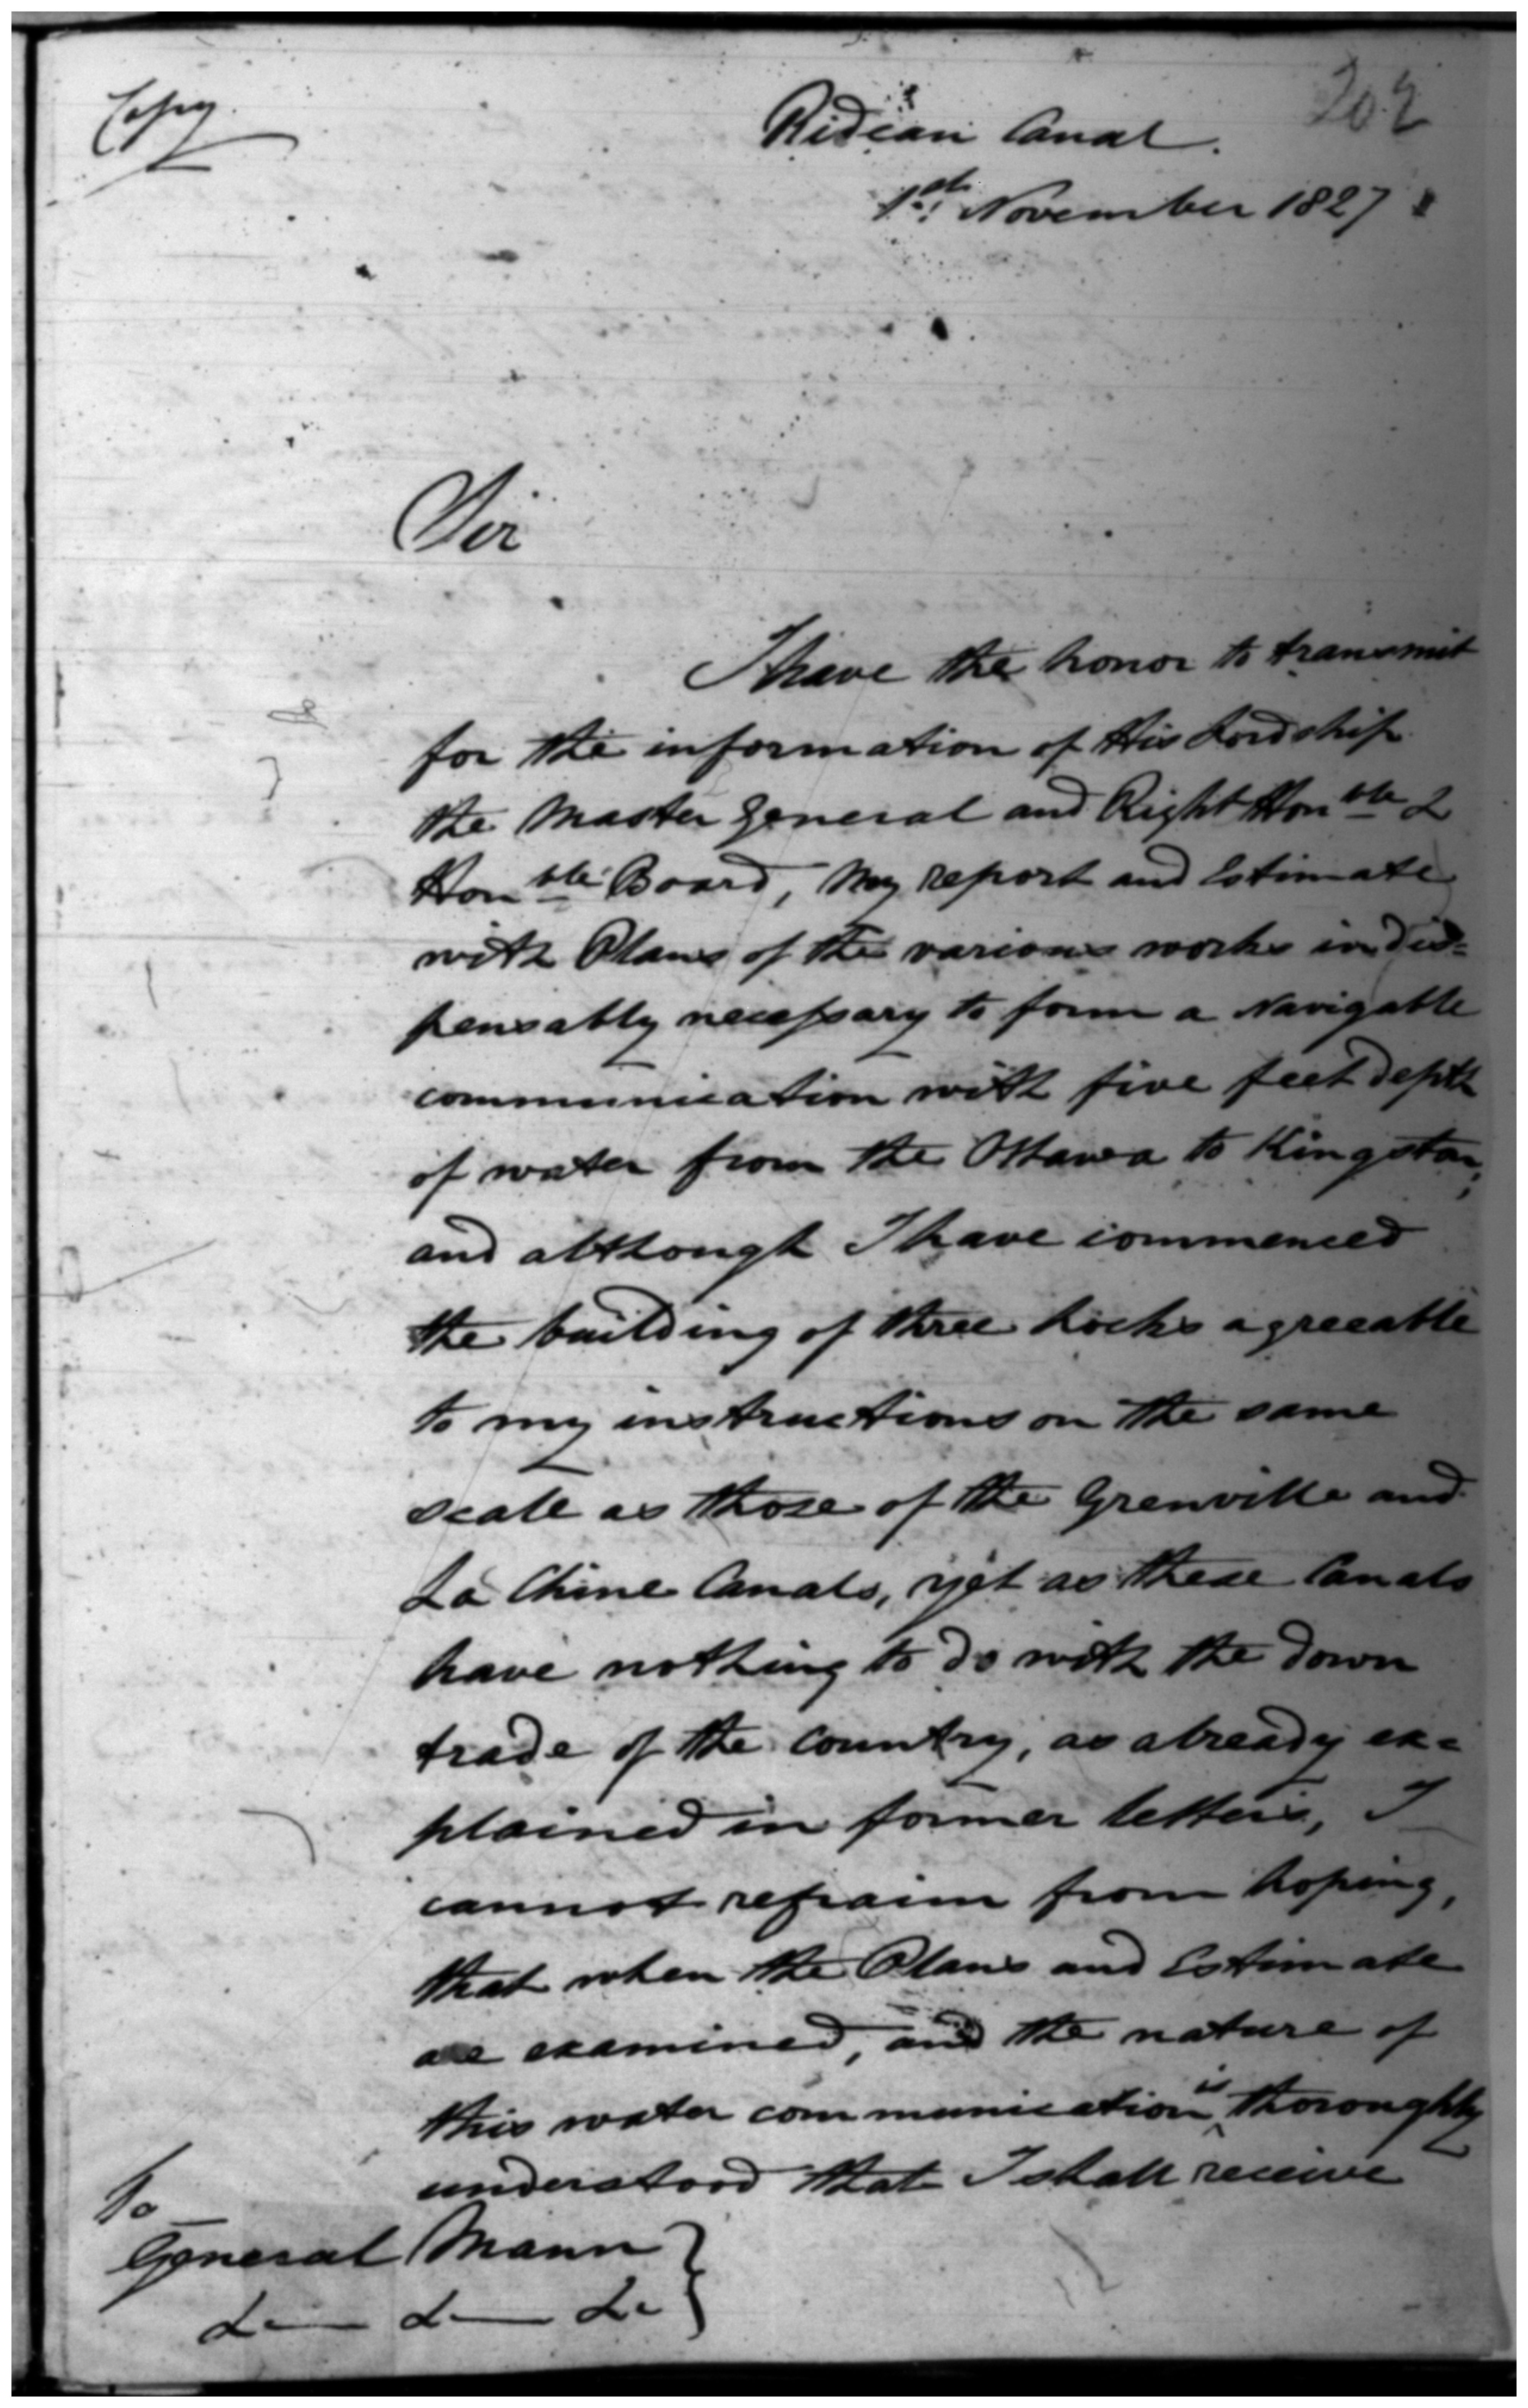 Copy
202
Rideau Canal.
1st November 1827
Sir
I have the honor to transmit
for the information of His Lordship
the Master General and Right Honble &
Honble Board, my report and Estimate
with Plans of the various works indis=
pensably necessary to form a Navigable
communication with five feet depth
of water from the Ottawa to Kingston;
and although I have commenced
the building of three Locks agreeable
to my instructions on the same
scale as those of the Grenville and
La Chine Canals, yet as these Canals
have nothing to do with the down
trade of the country, as already ex=
plained in former letters, I
cannot refrain from hoping,
that when the Plans and Estimate
are examined, and the nature of
this water communication is thoroughly
understood that I shall receive
To
General Mann
&c &c &c